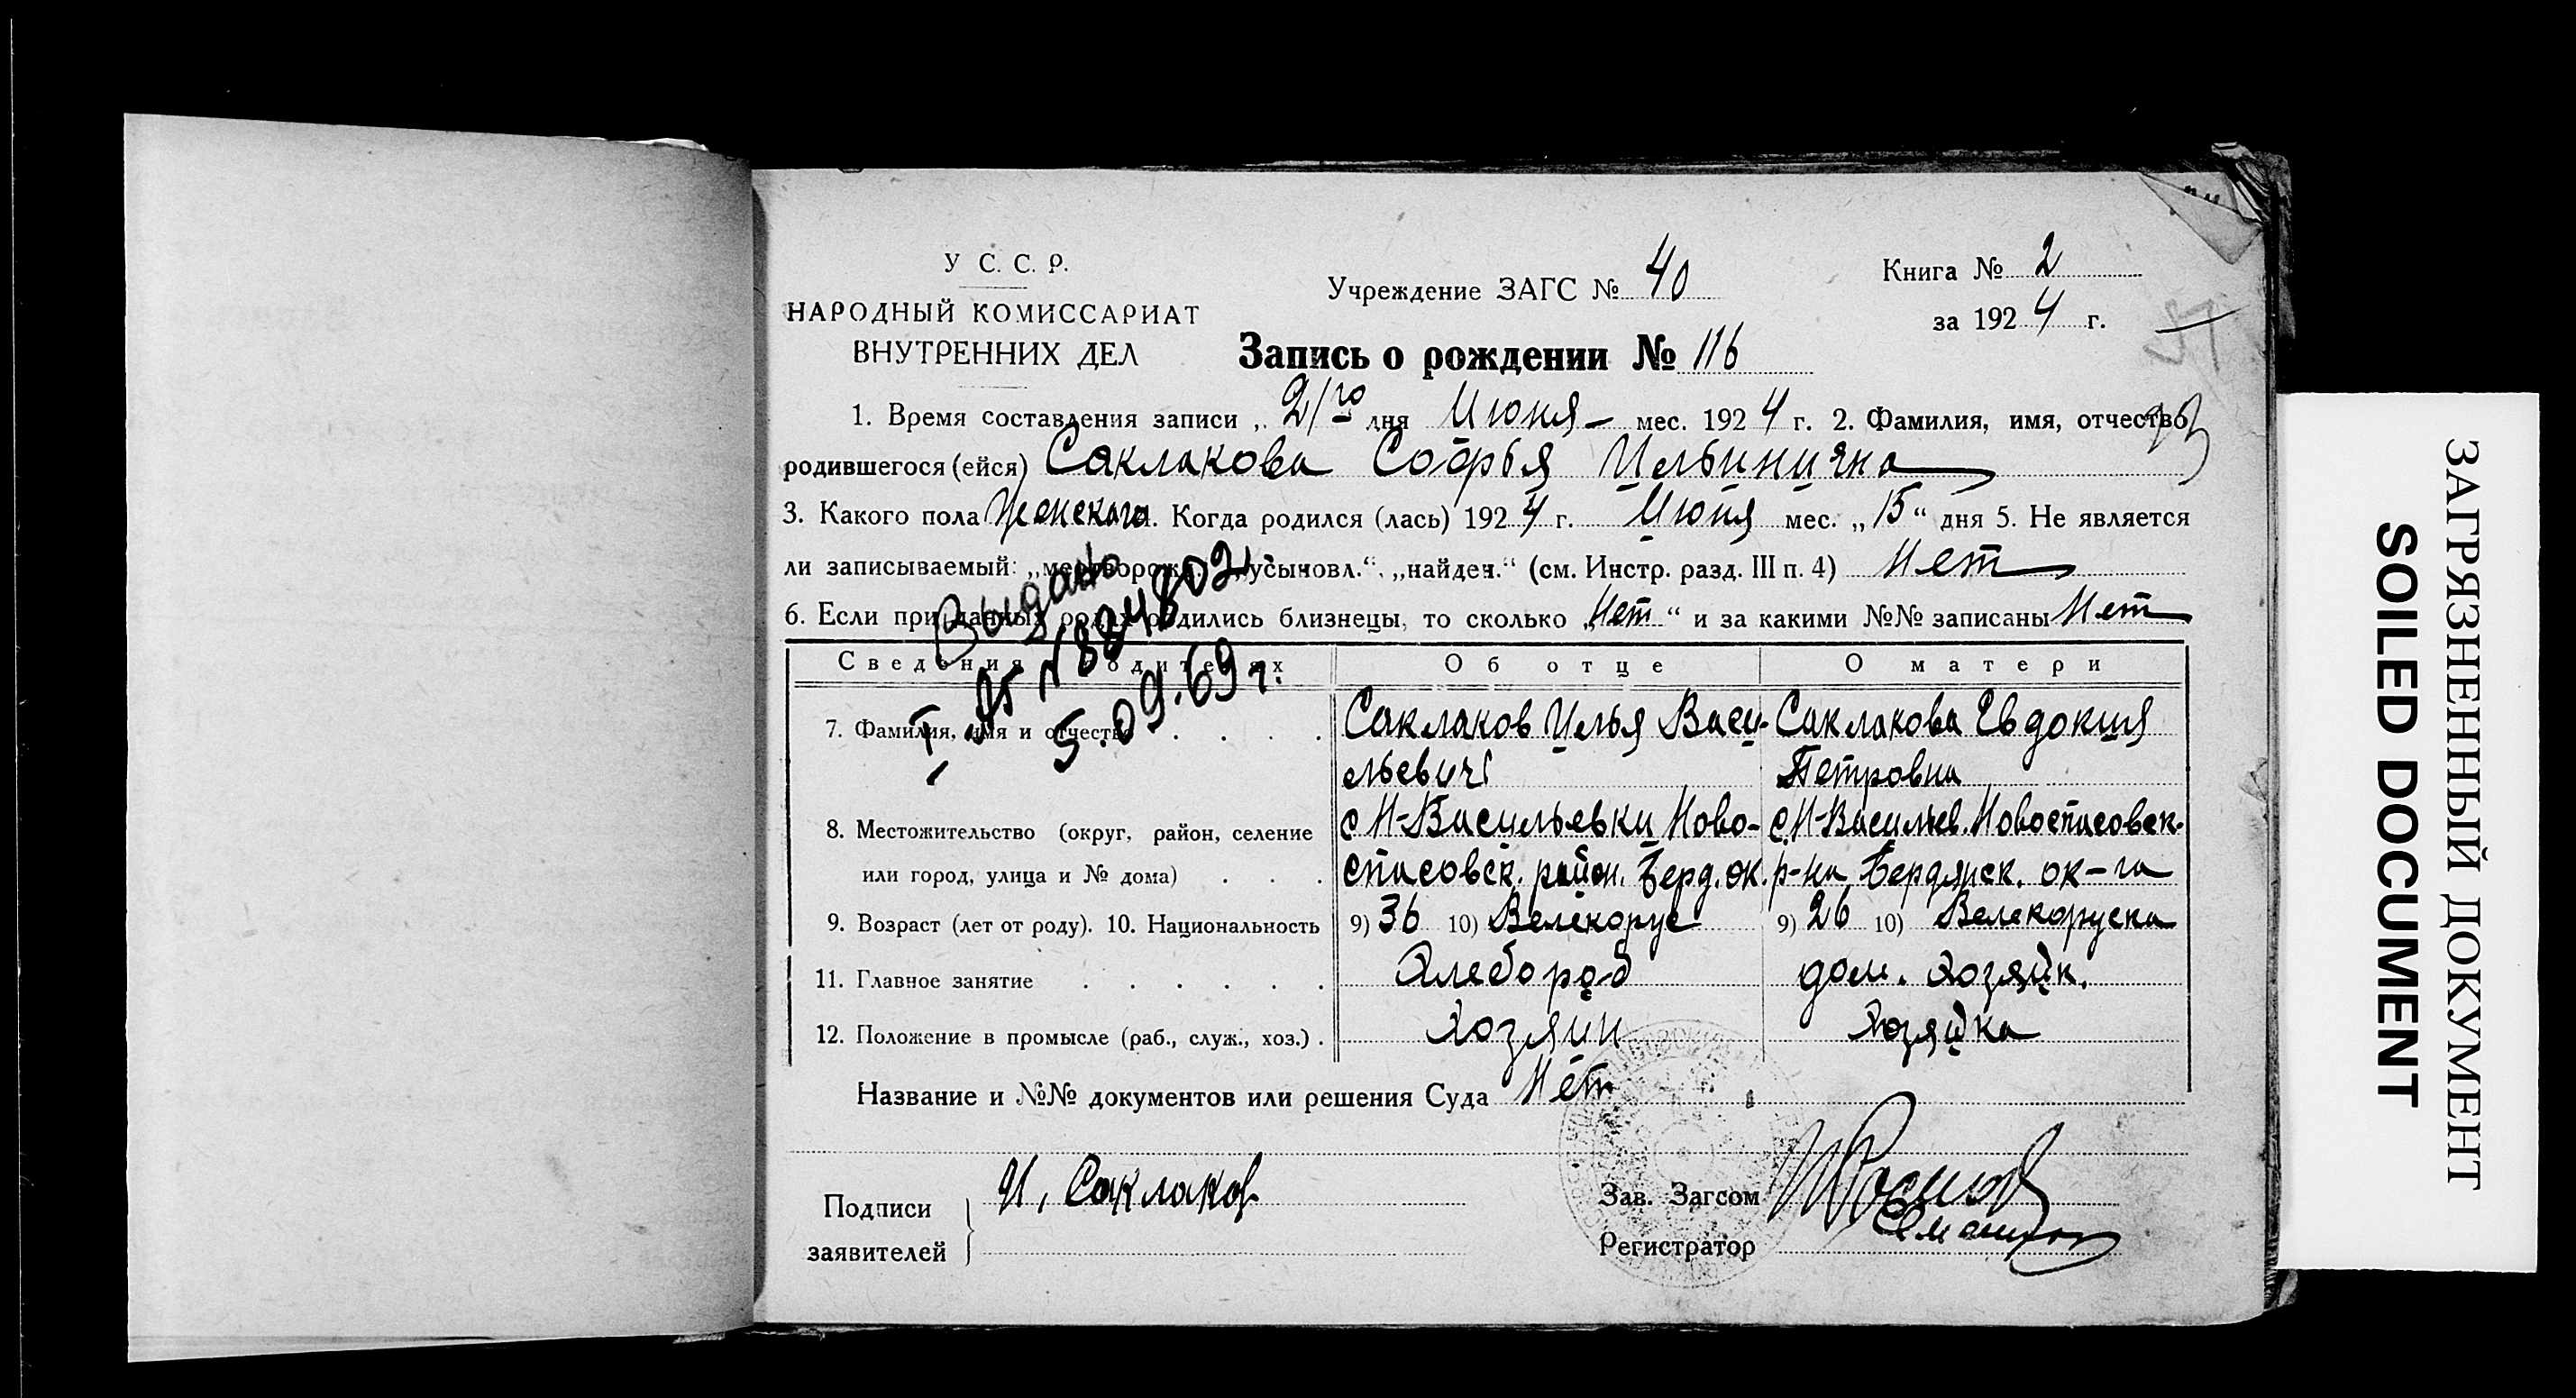 У С. С. Р.
НАРОДНЫЙ КОМИССАРИАТ
ВНУТРЕННИХ ДЕЛ
Учреждение ЗАГС № 40
Книга № 2
за 1924 г.
Запись о рождении № 116
1. Время составления записи „ 21го дня Июня мес. 1924 г. 2. Фамилия, имя, отчество
родившегося (ейся) Саклакова Софья Ильинична
3. Какого пола Женскаго. Когда родился (лась) 1924 г. Июня мес. „15“ дня 5. Не является
ли записываемый: „мертворожд.“, „усыновл.“, „найден.“ (см. Инстр. разд. III п. 4) Нет
6. Если при данных родах родились близнецы, то сколько „Нет“ и за какими №№ записаны Нет
Выдано
I АП № 8848021
5.09.69 г.
Сведения о родителях Об отце О матери
7. Фамилия, имя и отчество . . . . Саклаков Илья Васи- Саклакова Евдокия
льевич Петровна
8. Местожительство (округ, район, селение с Н-Васильевки Ново- с Н-Васильев. Новоспасовск.
или город, улица и № дома) . . . спасовск. район. Берд. ок. р-на Бердянск. ок-га
9. Возраст (лет от роду). 10. Национальность 9) 36 10) Велекорус 9) 26 10) Велекоруска
11. Главное занятие . . . . . . Хлебороб дом. хозяйк.
12. Положение в промысле (раб., служ., хоз.) . Хозяин Хозяйка
Название и №№ документов или решения Суда Нет
Подписи
заявителей
И. Саклаков
Зав. Загсом
Регистратор
ЗАГРЯЗНЕННЫЙ ДОКУМЕНТ
SOILED DOCUMENT